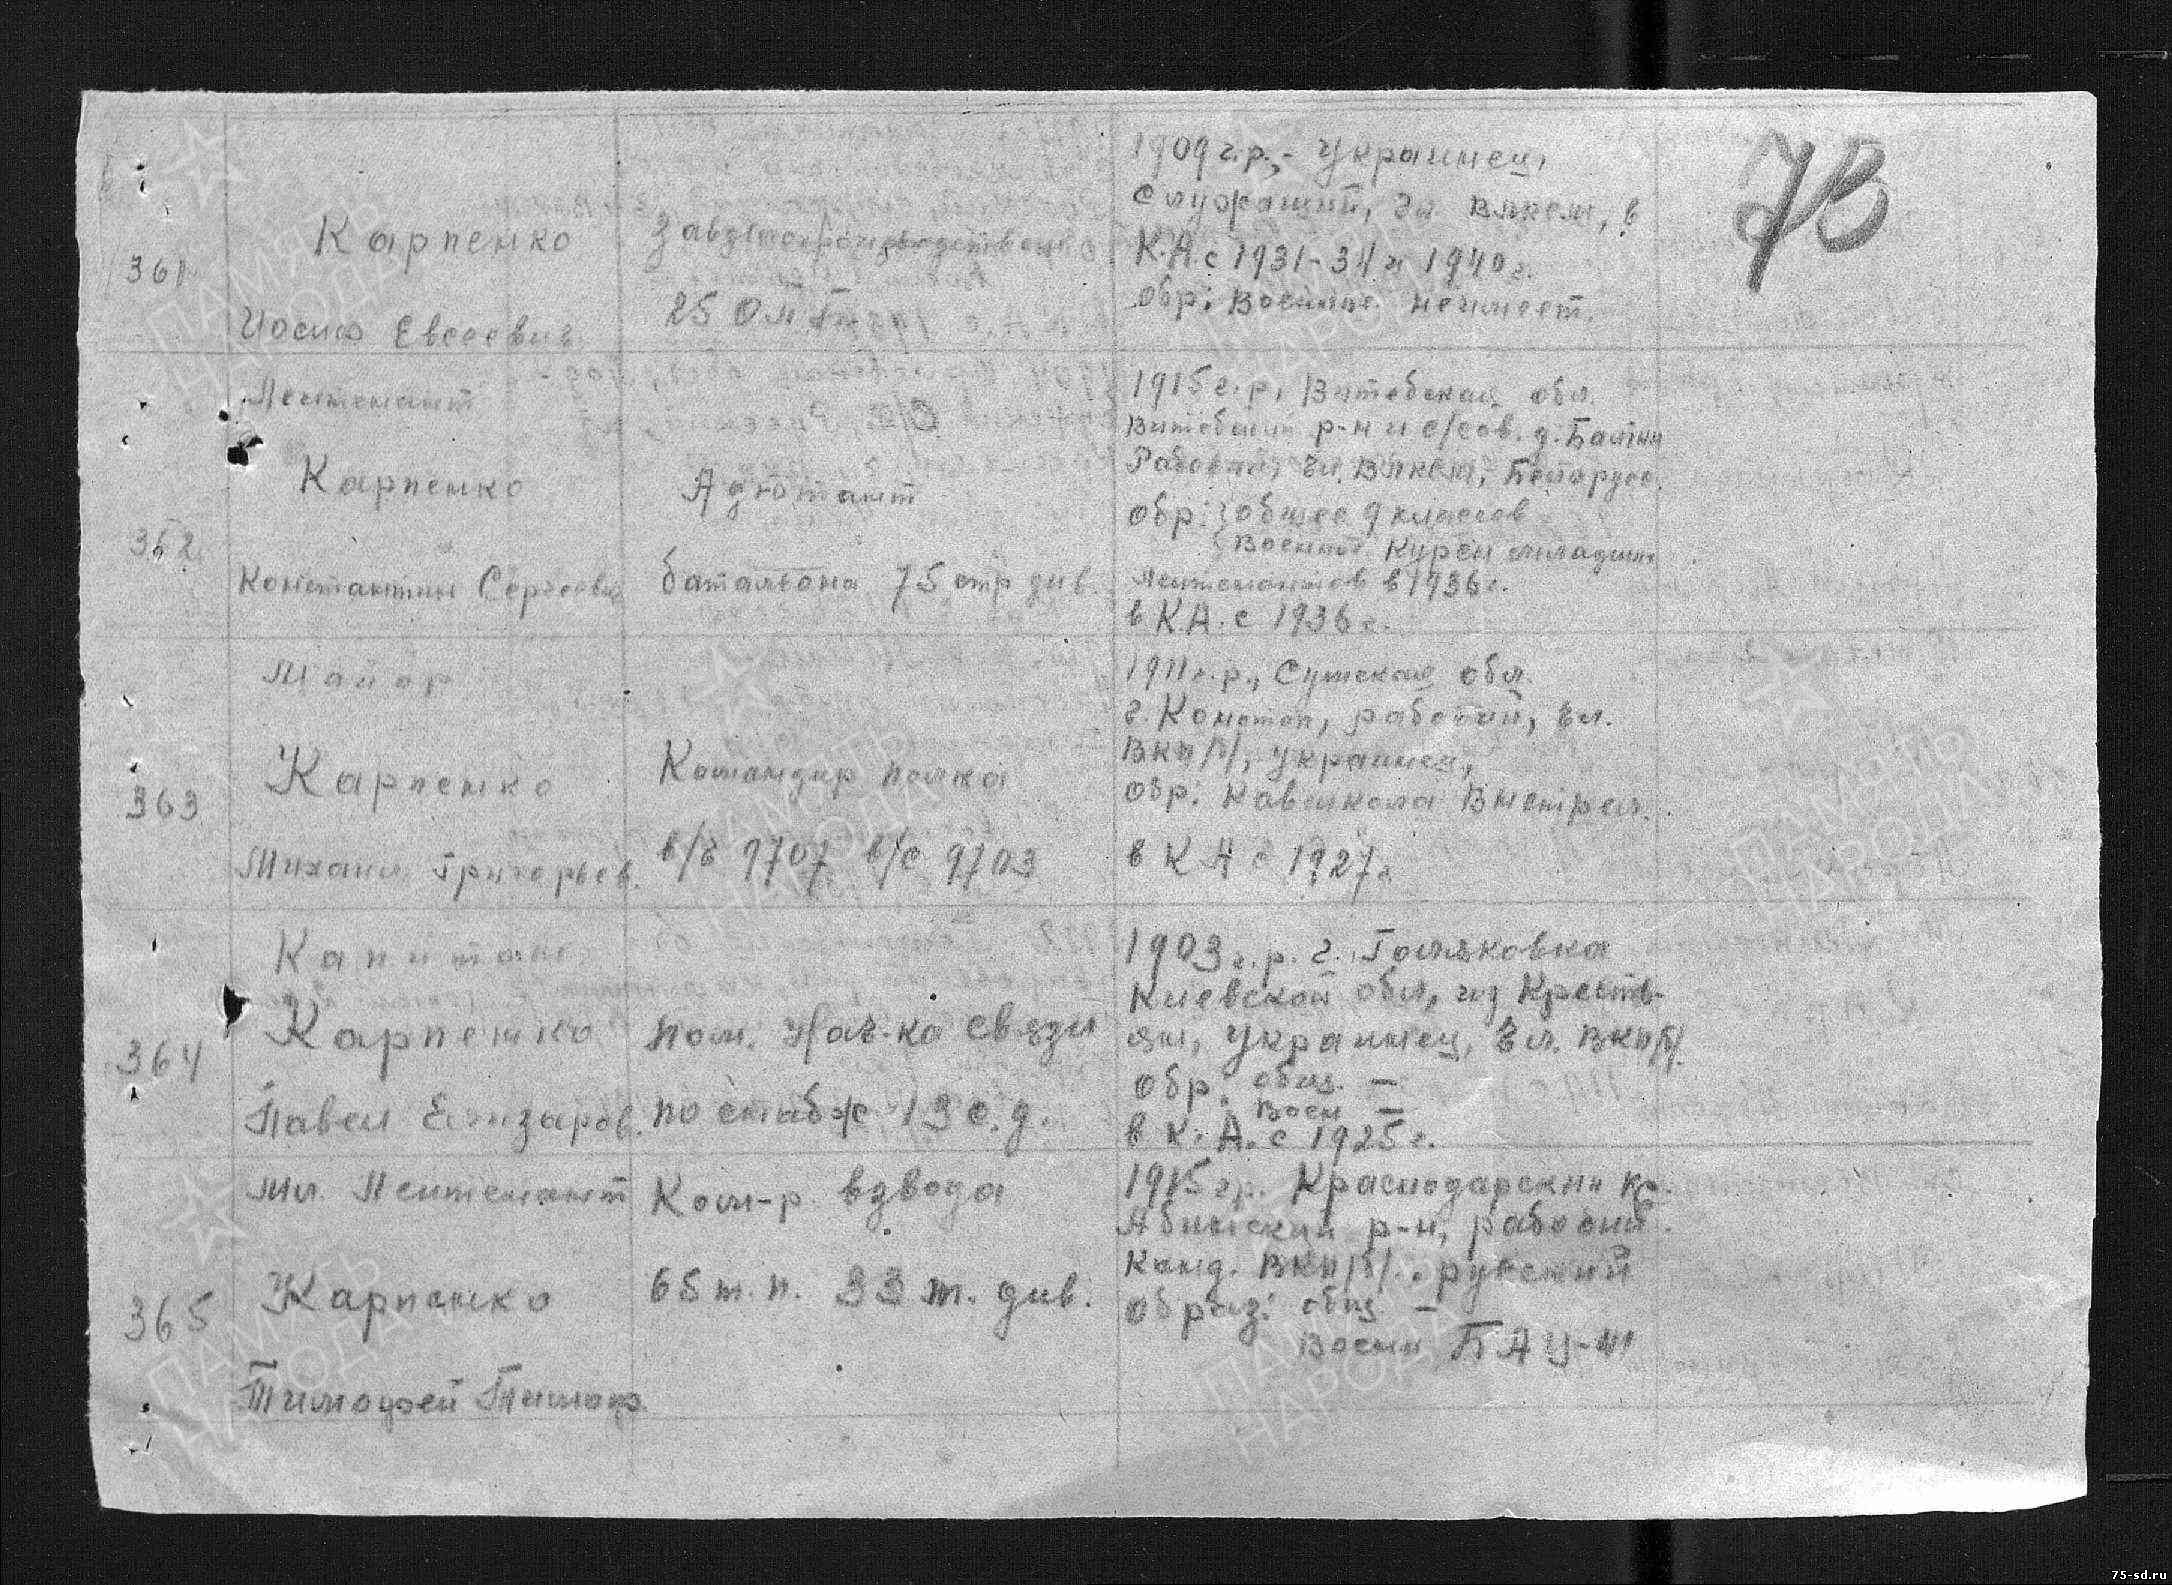 78
361
Карпенко
Иосиф Евсеевич
25
1909 г.р., - украинец,
служащий, чл ВЛКСМ, в
К.А. с 1931-34 и 1940 г.
обр: Военное неимеет.
362
Лейтенант
Карпенко
Константин Сергеевич
Адютант
баталиона 75 стр див.
1915 г.р, Витебская обл.
Витебский р-н и с/сов. д.
Рабочий, чл. ВЛКСМ, Белорус.
обр: общее 9 классов
Военное Курсы младших
лейтенантов в 1936 г.
в К.А. с 1936 г.
363
Майор
Карпенко
Михаил Григорьев.
Командир полка
в/ч 9707 в/с 9703
1911 г.р., Сумская обл.
г. Конотоп, рабочий, чл.
ВКП/б/, украинец,
обр:
в К А с 1927 г.
364
Капитан
Карпенко
Павел Елизаров.
пом. нач-ка связи
по снабж 13 с.д.
1903 г.р. г.
Киевской обл, из Кресть-
ян, украинец, чл. ВКП/б/.
обр: общ. -
Воен -
в К. А. с 1925 г.
365
Мл. Лейтенант
Карпенко
Тимофей Тимоф.
Ком-р взвода
65 т.п. 33 т. див.
1915 гр. Краснодарский кр.
Абинский р-н, рабочий.
Канд. ВКП/б/., русский
образ: общ -
Военн БАУ-41
ПАМЯТЬ
НАРОДА
75-sd.ru